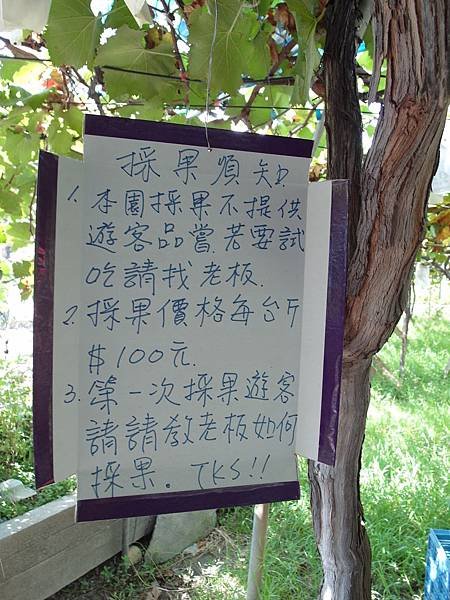 採果須知
1. 本園採果不提供
遊客品嘗.若要試
吃請找老板.
2. 採果價格每台斤
$100元.
3. 第一次採果遊客
請請教老板如何
採果。TKS!!